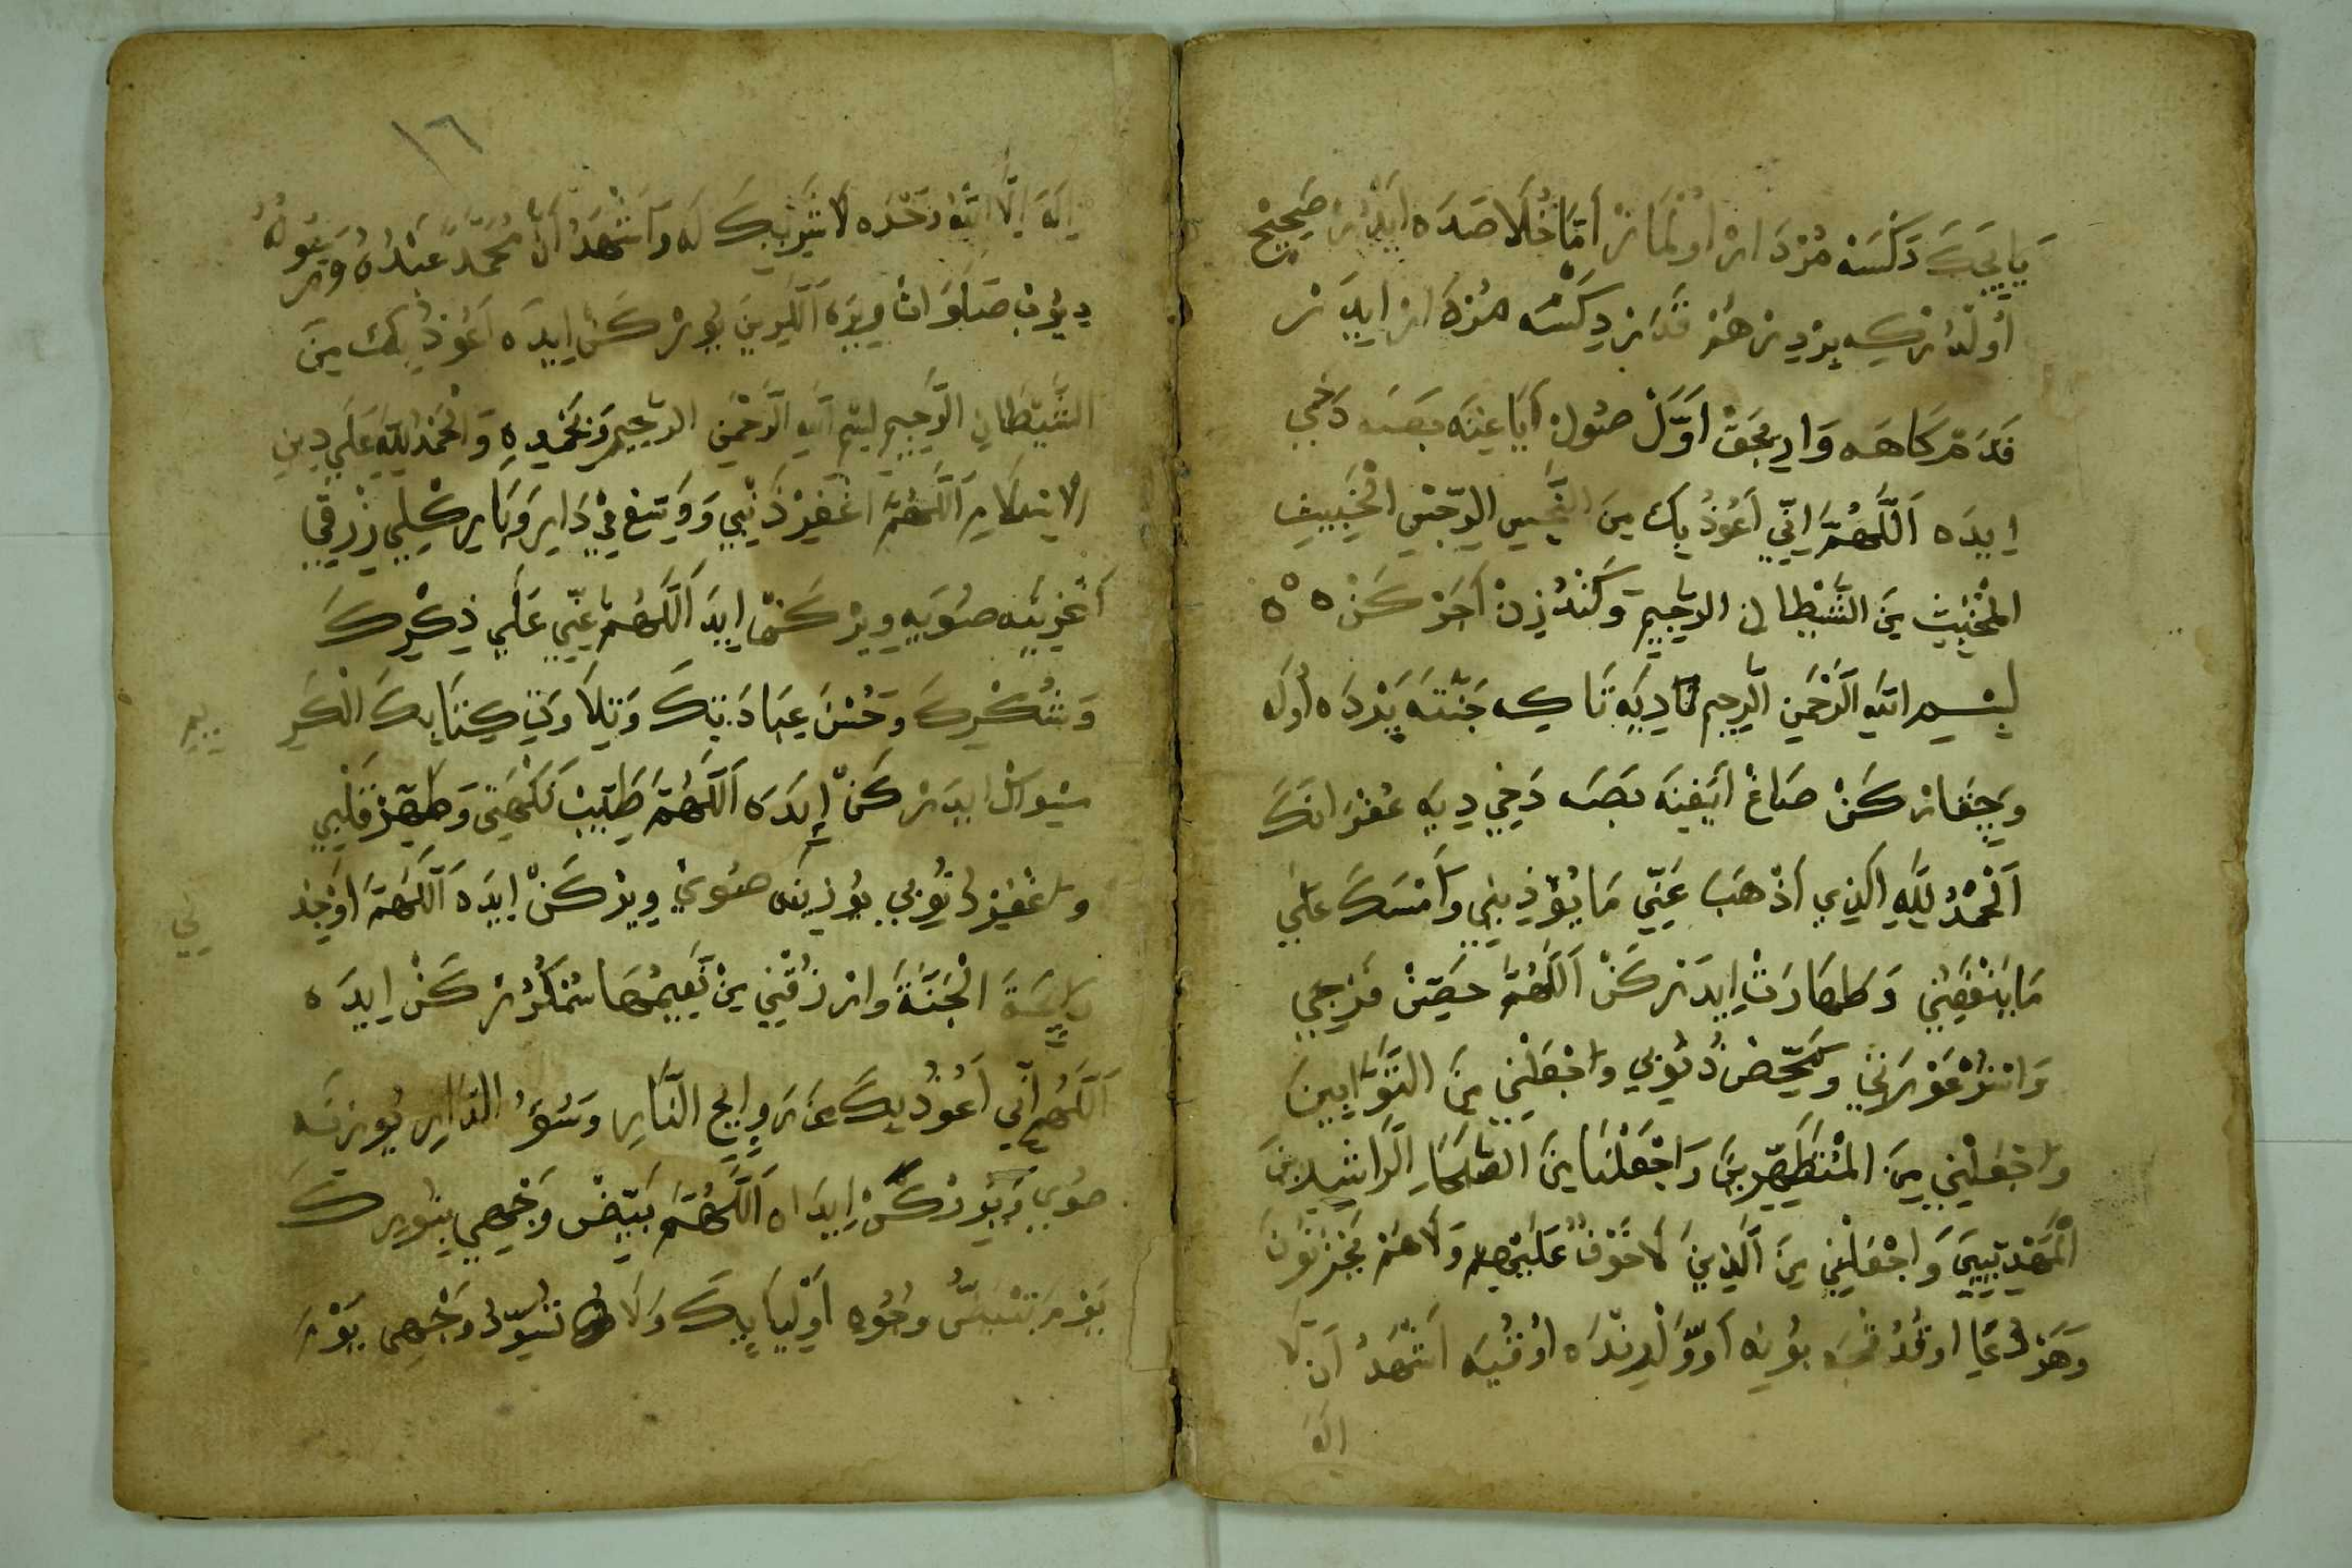 يَاپِيجَكَ دَكَسَه مُزْدَارْ اوُلْمَازْ أمَّا خُلَاصَدَه اَيْدُرْ صَحِيحْ
أُولْدُرْكِه بِرْدِرْ هَرْ قَدَرْ دِكَسْه مُزْدَارْ ايدَرْ
قَدَمْ كَاهَه وَارِيجَقْ اَوَّلْ صُولْ اَيَاغِنَه بَصَه دَخِي
اِيدَه اَللَّهُمَّ اِنِّي اَعُوذُ بِكَ مِنَ النَّجِسِ الرِّجْسِ الْخَبِيثِ
الْمُخْبِثِ مِنَ الشَّيْطَانِ الرَّجِيمِ وَكَنْدُزِنْ اَجَرْ كَنْ ٥ ٥
بِسْمِ اللّهِ الرَّحْمَنِ الرَّحِيمِ دِيَه تَاكِه جَنَّتَه پَرْدَه اُولَه
وَچِقَارْ كَنْ صَاغْ اَيَغِنَه بَصَه دَخِي دِيَه غُفْرَانَكَ
اَلْحَمْدُ لِلَّهِ الَّذِي اَذْهَبَ عَنِّي مَا يُؤْذِينِي وَاَمْسَكَ عَلَيَّ
مَا يَنْفَعُنِي وَطَهَارَتْ اِيدَرْكَنْ اَللَّهُمَّ حَصِّنْ فَرْجِي
وَاسْتُرْ عَوْرَتِي وَمَحِّصْ ذُنُوبِي وَاجْعَلْنِي مِنَ التَّوَّابِينَ
وَاجْعَلْنِي مِنَ الْمُتَطَهِّرِينَ وَاجْعَلْنَا مِنَ الصُّلَحَاءِ الرَّاشِدِينَ
الْمَهْدِيِّينَ وَاجْعَلْنِي مِنَ الَّذِينَ لَا خَوْفٌ عَلَيْهِمْ وَلَا هُمْ يَحْزَنُونَ
وَهَرْ دُعَا اوقُدُقْجَه بُونِه اَوَّلِنْدَه اُوقُيَه اَشْهَدُ اَنْ لَا
اِلَهَ
١٦
اِلَهَ اِلَّا اللّهُ وَحْدَه لَا شَرِيكَ لَه وَاَشْهَدُ اَنَّ مُحَمَّدًا عَبْدُهُ وَرَسُولُهُ
دِيُوبْ صَلَوَاتْ وِيرَه اَللِرِينْ يُورْكَنْ اِيدَه اَعُوذُ بِكَ مِنَ
الشَّيْطَانِ الرَّجِيمِ بِسْمِ اللّهِ الرَّحْمَنِ الرَّحِيمِ وَبِحَمْدِهِ وَالْحَمْدُ لِلّهِ عَلَى دِينِ
الْاِسْلَامِ اَللَّهُمَّ اغْفِرْ ذَنْبِي وَوَسِّعْ فِي دَارِي وَبَارِكْ لِي رِزْقِي
اَغْزِينَه صُويَه وِيرْكَنْ اِيدَ اَللَّهُمَّ اَعِنِّي عَلَى ذِكْرِكَ
وَشُكْرِكَ وَحُسْنِ عِبَادَتِكَ وَتِلَاوَةِ كِتَابِكَ الْكَرِ
يمِ
مِسْوَاكْ ايدَرْكَنْ اِيدَه اَللَّهُمَّ طَيِّبْ نَكْهَتِي وَطَهِّرْ قَلْبِي
وَاغْفِرْ ذُنُوبِي بُورْنِنَه صُويْ وِيرْكَنْ اِيدَه اَللَّهُمَّ اَوْجِدْ
نِي
رَايِحَةَ الْجَنَّةِ وَارْزُقْنِي مِنْ نَعِيمِهَا سُمْكُرُرْكَنْ اِيدَه
اَللَّهُمَّ اِنِّي اَعُوذُ بِكَ مِنْ رَوَايِحِ النَّارِ وَسُوءِ الدَّارِ يُوزِنَه
صُويِي دُويُورْكَنْ اِيدَاه اَللَّهُمَّ بَيِّضْ وَجْهِي بِنُورِكَ
يَوْمَ تَبْيَضُّ وُجُوهُ اَوْلِيَايِكَ وَلَا تُسَوِّدْ وَجْهِي يَوْمَ